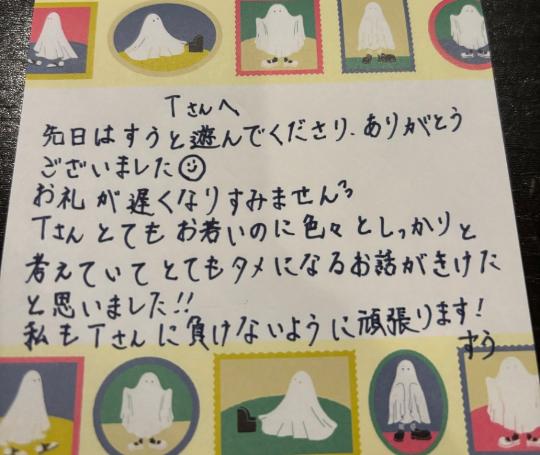 Tさんへ
先日はすうと遊んでくださり、ありがとう
ございました☺
お礼が遅くなりすみません💦
Tさんとてもお若いのに色々としっかりと
考えていてとてもタメになるお話がきけた
と思いました!!
私もTさんに負けないように頑張ります!
すう